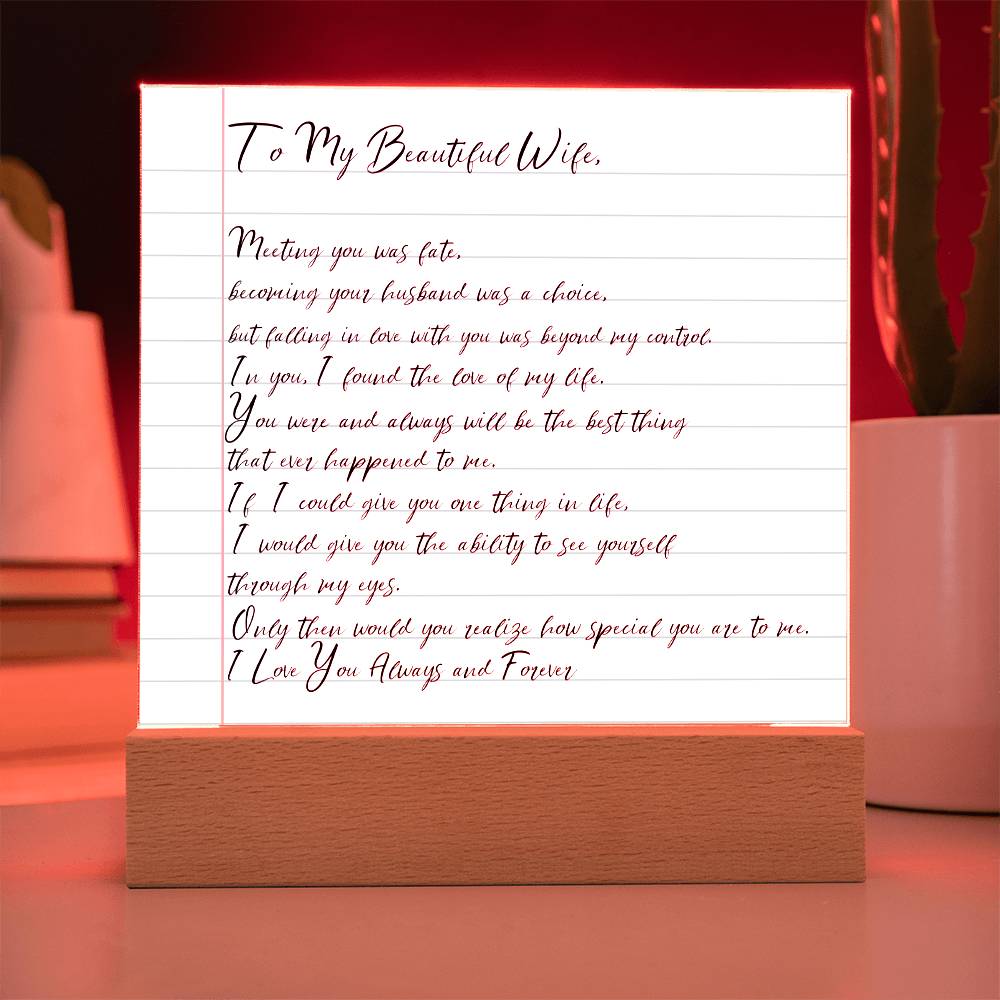 To My Beautiful Wife,
Meeting you was fate,
becoming your husband was a choice,
but falling in love with you was beyond my control.
In you, I found the love of my life.
You were and always will be the best thing
that ever happened to me.
If I could give you one thing in life,
I would give you the ability to see yourself
through my eyes.
Only then would you realize how special you are to me.
I Love You Always and Forever